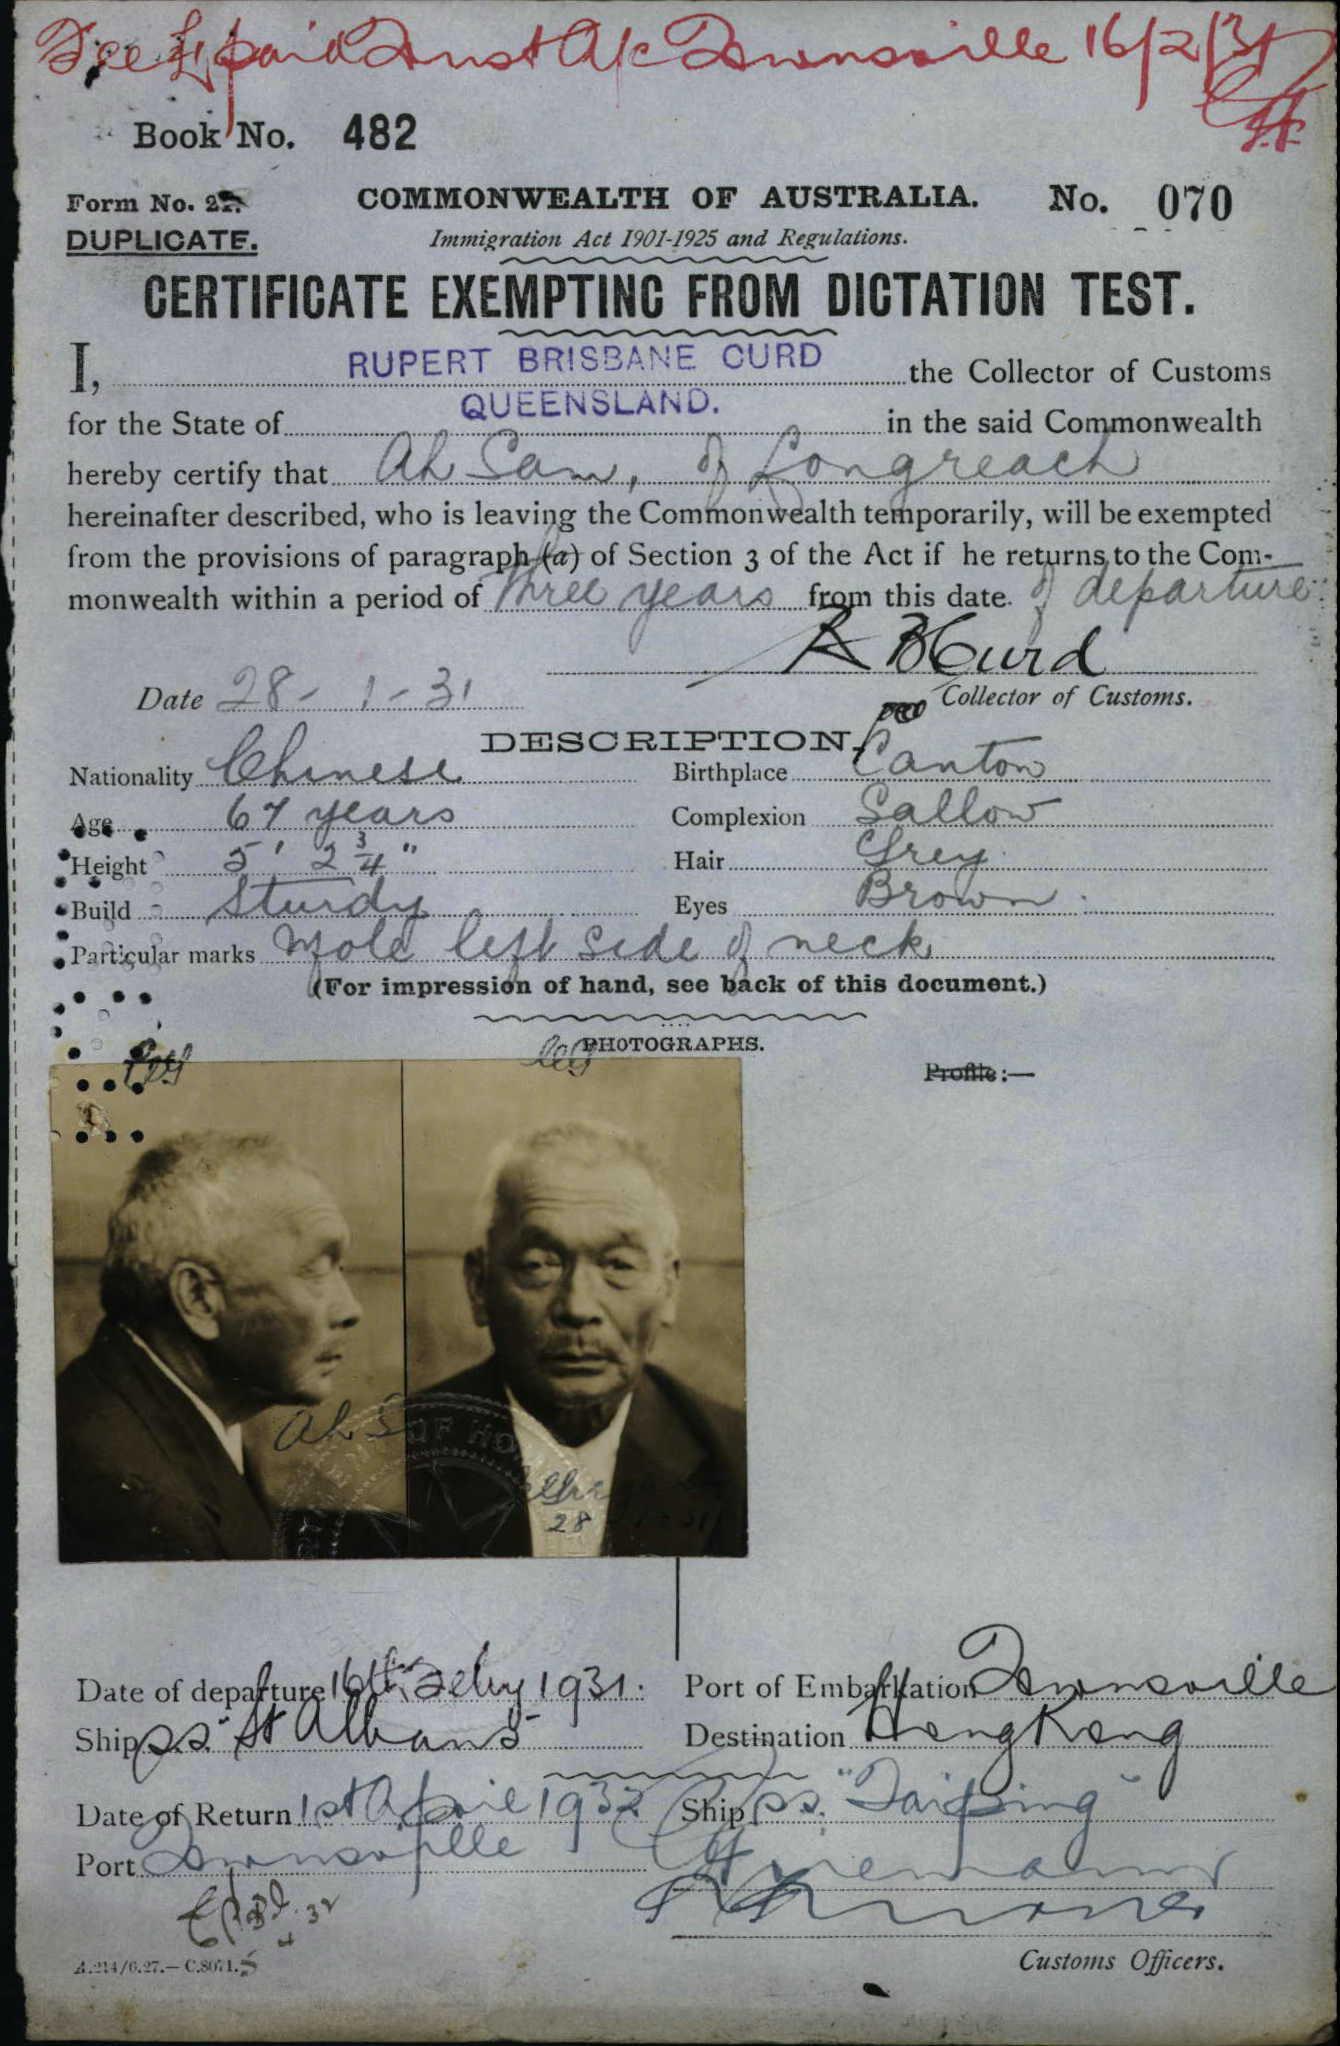 Fee £1 paid Trust A/c Townsville 16/2/31
Book No. 482
Form No. 21.
COMMONWEALTH OF AUSTRALIA.
No. 070
DUPLICATE.
Immigration Act 1901-1925 and Regulations.
CERTIFICATE EXEMPTING FROM DICTATION TEST.
I, RUPERT BRISBANE CURD the Collector of Customs
for the State of QUEENSLAND. in the said Commonwealth
hereby certify that Ah Sam, of Longreach
hereinafter described, who is leaving the Commonwealth temporarily, will be exempted
from the provisions of paragraph (a) of Section 3 of the Act if he returns to the Com-
monwealth within a period of three years from this date of departure
R B Curd
Date 28-1-31
Collector of Customs.
DESCRIPTION.
Nationality Chinese
Birthplace Canton
Age 67 years
Complexion Sallow
Height 5' 2 3/4"
Hair Grey
Build Sturdy
Eyes Brown
Particular marks Mole left side of neck
(For impression of hand, see back of this document.)
PHOTOGRAPHS.
Profile:—
Ah S
OF HO
28
Date of departure 16th Feby 1931.
Port of Embarkation Townsville
Ship s.s. "St Albans"
Destination Hong Kong
Date of Return 1st April 1932
Ship s.s. "Taiping"
Port Townsville
A.214/6.27.—C.8071.
Customs Officers.